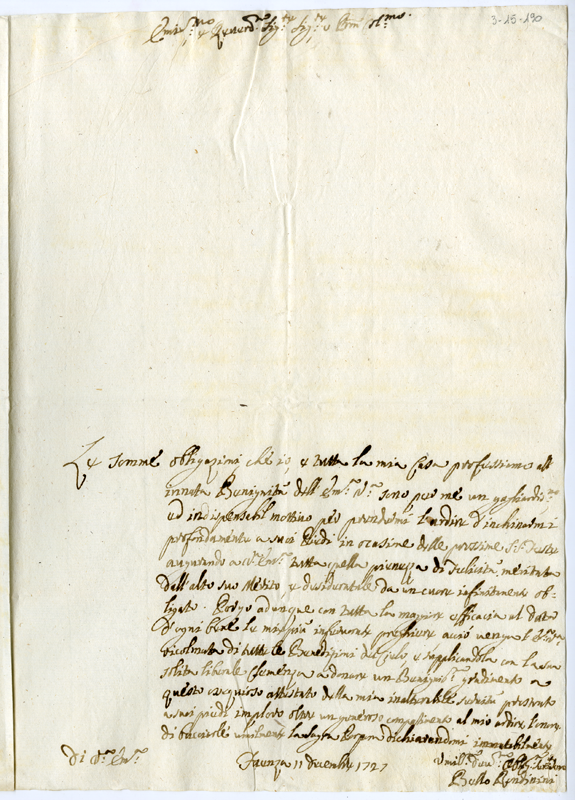 3-15-190
Emin.mo e Rever.mo Sig.re Sig.re e Pron Col.mo
Le somme obligazioni che io, e tutta la mia Casa professiamo all
innata Benignità dell Em.za V.a sono per me un gagliardis.mo
ed indispensabil mottivo per prendermi l'ardire d'inchinarmi
profondamente a suoi Piedi in occasione delle prossime S.te Feste
augurando a V.a Em.za tutta quella pienezza di Felicità, meritata
dall'alto suo Merito, e desiderabile da un cuore infinitamente ob-
ligato. Porgo adunque con tutta la maggior efficacia al Dator
d'ogni bene le mie più infervorate preghiere acciò venga l'Em.za V.a
ricolmata di tutte le Benedizioni del Cielo, e supplicandola con la sua
solita liberale Clemenza a donare un Benignis.mo gradimento a
questo ossequioso attestato della mia inalterabile servitù prostrato
a suoi piedi imploro oltre un generoso compatimento al mio ardire, l'onore
di bacciarle umilmente la Sagra Porpora dichiarandomi immutabilmente
Di V.a Em.za
Faenza 11 Dicembre 1727
Umil.mo Dev.mo